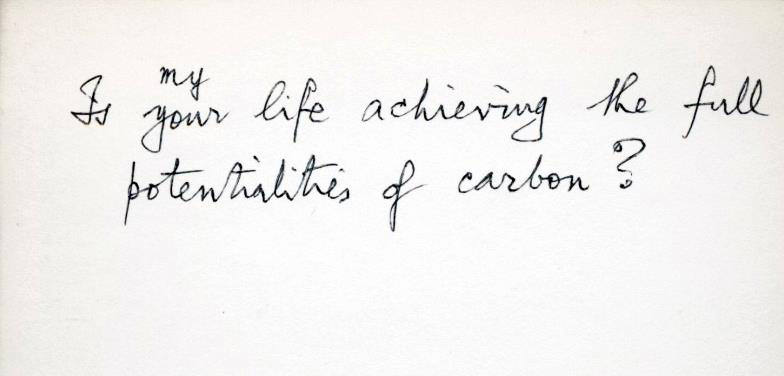 my
Is your life achieving the full
potentialities of carbon?